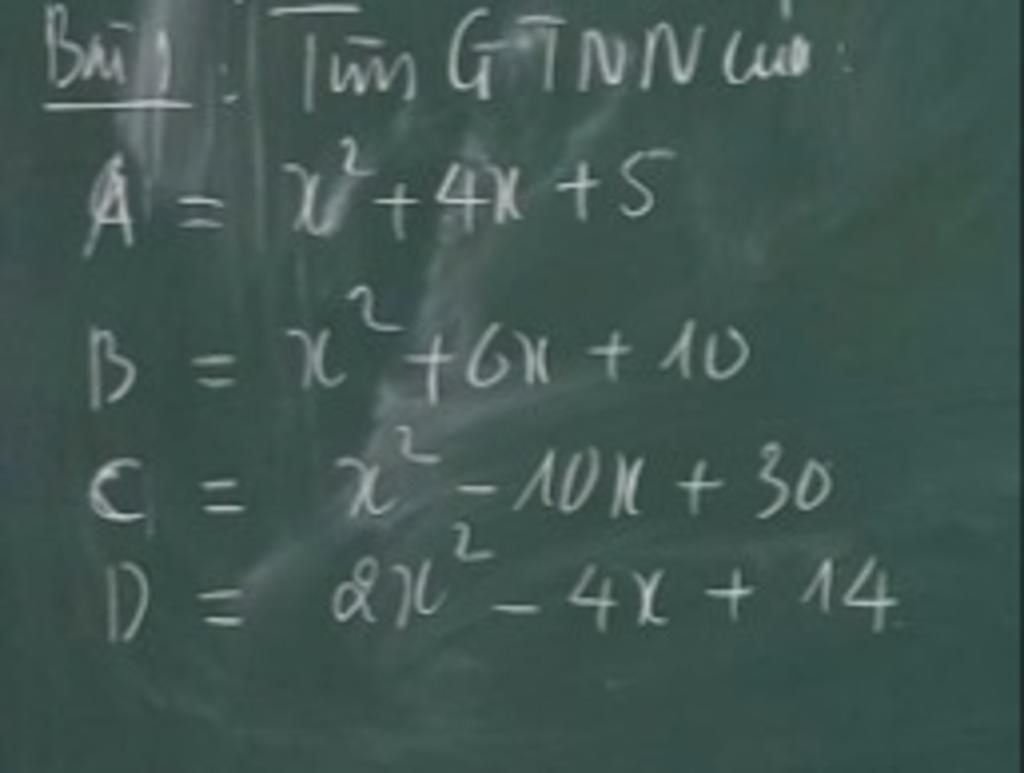 Bài 1: Tìm GTNN của:
A = x² + 4x + 5
B = x² + 6x + 10
C = x² - 10x + 30
D = 2x² - 4x + 14